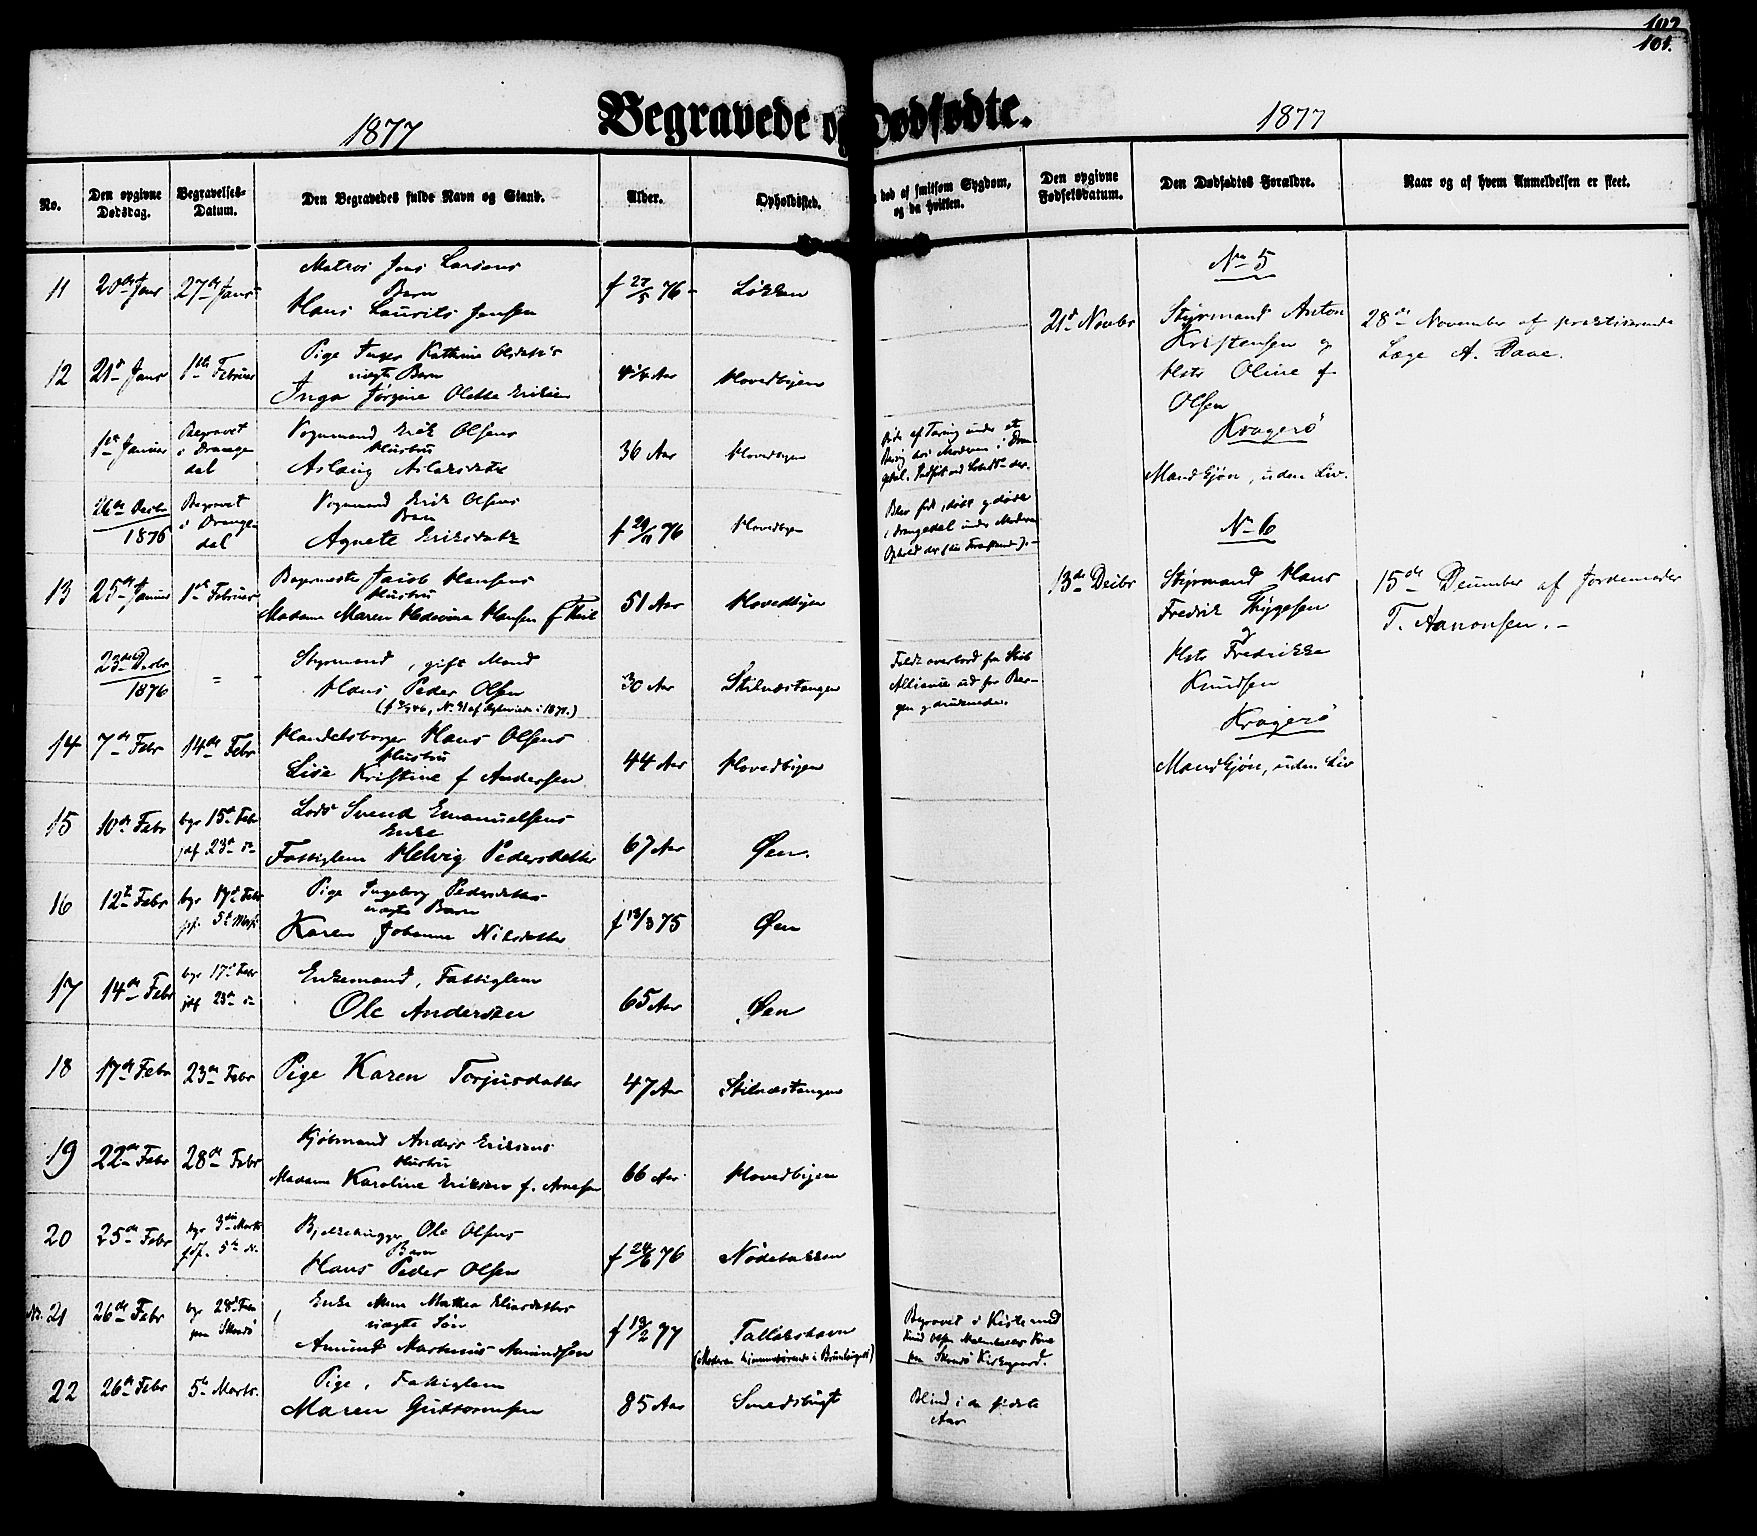 102
101.
1877
Begravede og Dødfødte.
1877
No.
Den opgivne Dødsdag.
Begravelses-Datum.
Den Begravedes fulde Navn og Stand.
Alder.
Opholdssted.
død af smitsom Sygdom, og da hvilken.
Den opgivne Fødselsdatum.
Den Dødfødtes Forældre.
Naar og af hvem Anmeldelsen er skeet.
11 20de Janr 27de Janr
Matros Jens Larsens
Barn
Hans Laurits Jensen
f 27/5 76 Løkken
12 21de Janr 1ste Februar
Pige Inger Kathrine Olsdatters
uægte Barn
Inga Jørgine Olette Eriksen
4 1/4 Aar Hovedbyen
1ste Januar Begravet i Drangedal
Vognmand Erik Olsens
Hustru
Aslaug Aslaksdatter
36 Aar Hovedbyen
26de Decbr 1876 Begravet i Drangedal
Vognmand Erik Olsens
Barn
Agnete Eriksdatter
f 29/11 76 Hovedbyen
13 25de Januar 1ste Februar
Bagermester Jacob Hansens
Hustru
Madame Maren Hedevine Hansen f
51 Aar Hovedbyen
23de Decbr 1876 = -
Styrmand, gift Mand
Hans Peder Olsen
30 Aar Stilnæstangen
Faldt overbord fra Skib
Alliance ud for Bergen
og druknede.
14 7de Febr 14de Febr
Handelsborger Hans Olsens
Hustru
Lise Kristine f Andersen
44 Aar Hovedbyen
15 10de Febr bgr 15de Febr
jdf 23de
Lods Svend Emanuelsens
Enke
Fattiglem Helvig Pedersdatter
67 Aar Øen.
16 12te Febr bgr 17de Febr
jdf. 5te Marts
Pige Ingeborg Pedersdatters
uægte Barn
Karen Johanne Nilsdatter
f 18/3 75 Øen
17 14de Febr bgr 17de Febr
jdf 23de
Enkemand, Fattiglem
Ole Andersen
65 Aar Øen
18 17de Febr 23de Febr
Pige Karen Torjusdatter
47 Aar Stilnæstangen
19 22de Febr 28de Febr
Kjøbmand Anders Eriksens
Hustru
Madame Karoline Eriksen f. Arnesen
66 Aar Hovedbyen
20 25de Febr bgr 3die Marts
jdf. 5te
Ole Olsens
Barn
Hans Peder Olsen
f 24/6 76
21 26de Febr bgr 28de Febr
paa Skaadø
Enke Mathea Eliasdatters
uægte Søn
Amund Martinius Amundsen
f 19/2 77 Tallakshavn
Begravet i Kiste med
paa Skaadø Kirkegaard.
22 26de Febr 5te Marts
Pige, Fattiglem
Maren Guttormsen
85 Aar Smedsbugt
Blind i de sidste
Aar
No 5
21de Novbr
Styrmand Anton
Kristensen og
Hstr Oline f
Olsen
Kragerø
Mandkjøn, uden Liv.
28de November af praktiserende
Læge A. Daae.
No 6
13de Decbr
Styrmand Hans
Fredrik Thygesen
og
Hstr Fredrikke
Knudsen
Kragerø
Mandkjøn, uden Liv
15de December af Jordemoder
T. Aanonsen.